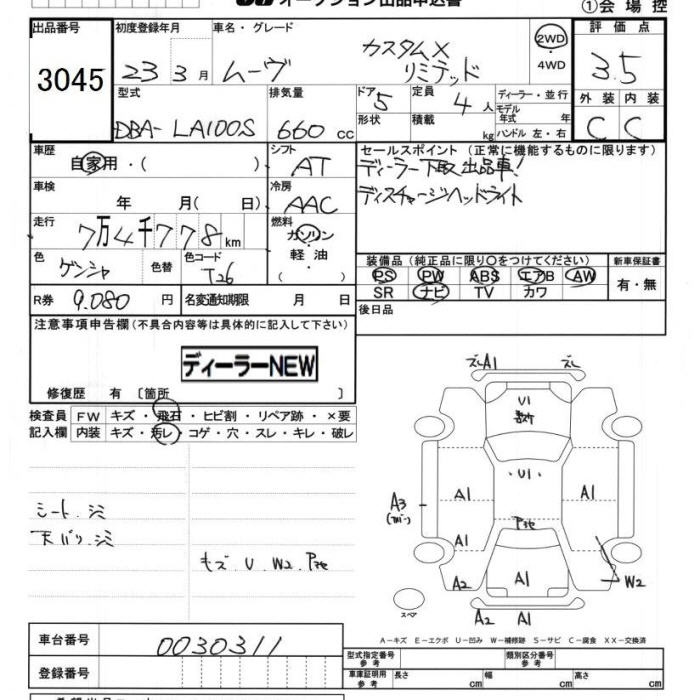 オークション出品申込書
①会場控
出品番号
3045
初度登録年月
23 3月
車名・グレード
ムーヴ
カスタムX
リミテッド
2WD
・
4WD
評価点
3.5
外装 内装
C C
型式
DBA-LA100S
排気量
660 cc
ドア 5
形状
定員 4人
積載 kg
ディーラー・並行
モデル
年式 年
ハンドル 左・右
車歴
自家用・( )
シフト
AT
車検
年 月( 日)
冷房
AAC
走行
7万4千778km
燃料
ガソリン
・
軽油
・
( )
色
ゲンシャ
色替
色コード
T26
R券 9.080 円
名変通知期限 月 日
セールスポイント(正常に機能するものに限ります)
ディーラー下取出品車!
ディスチャージヘッドライト
装備品(純正品に限り○をつけてください)
新車保証書
PS PW ABS エアB AW
SR ナビ TV カワ
有・無
後日品
注意事項申告欄(不具合内容等は具体的に記入して下さい)
ディーラーNEW
修復歴 有 〔箇所 〕
検査員
記入欄
FW キズ・飛石・ヒビ割・リペア跡・×要
内装 キズ・汚レ・コゲ・穴・スレ・キレ・破レ
シート.シミ
天バリ.シミ
キズ.U.W2.
ズレ A1 ズレ
U1
・U1
A1 A1
A3
A1
A2 A1 W2
スペア
A2 A1
A-キズ E-エクボ U-凹み W-補修跡 S-サビ C-腐食 XX-交換済
車台番号
0030311
登録番号
型式指定番号
参考
類別区分番号
参考
車庫証明用
参考
長さ cm
幅 cm
高さ cm